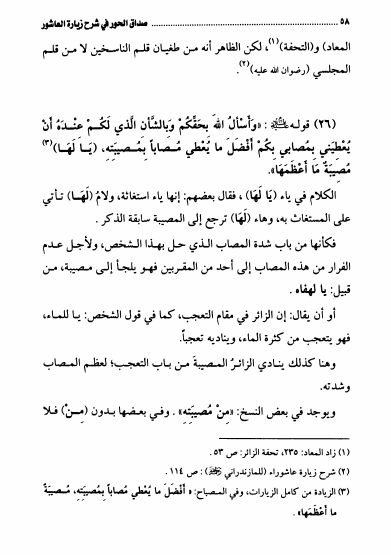 ٥٨ ........ صداق الحور في شرح زيارة العاشور
المعاد) و(التحفة)(١)، لكن الظاهر أنه من طغيان قلم الناسخين لا من قلم
المجلسي (رضوان الله عليه)(٢).
(٢٦) قوله ﷺ: «وَأَسْأَلُ اللهَ بِحَقِّكُمْ وَبِالشَّأنِ الَّذي لَكُمْ عِنْدَهُ أَنْ
يُعْطِيَني بِمُصابي بِكُمْ أَفْضَلَ ما يُعْطي مُصاباً بِمُصيبَتِهِ، (يَا لَهَا)(٣)
مُصيبَةً مَا أَعْظَمَهَا».
الكلام في ياء (يَا لَهَا) ، فقال بعضهم: إنها ياء استغاثة، ولامُ (لَهَـا) تـأتي
على المستغاث به، وهاء (لَهَا) ترجع إلى المصيبة سابقة الذكر .
فكأنها من باب شدة المصاب الـذي حـل بهـذا الـشخص، ولأجـل عـدم
الفرار من هذه المصاب إلى أحد من المقربين فهـو يلجـأ إلى مصيبة، مـن
قبيل: يا لهفاه .
أو أن يقال: إن الزائر في مقام التعجب، كما في قول الشخص: يـا للمـاء،
فهو يتعجب من كثرة الماء، ويناديه تعجباً.
وهنا كذلك ينادي الزائـرُ المصيبةَ مـن بـاب التعجـب؛ لعظـم المـصاب
وشدته.
ويوجد في بعض النسخ: «مِنْ مُصيبَتِهِ» . وفي بعضها بدون (مِـنْ) فـلا
(١) زاد المعاد: ٢٣٥، تحفة الزائر: ص ٥٣.
(٢) شرح زيارة عاشوراء (للمازندراني): ص ١١٤ .
(٣) الزيادة من كامل الزيارات، وفي المصباح: « أَفْضَلَ مـا يُعْـطي مُـصاباً بِمُصيبَتِهِ، مُـصيبَةً
ما أَعْظَمَها» .